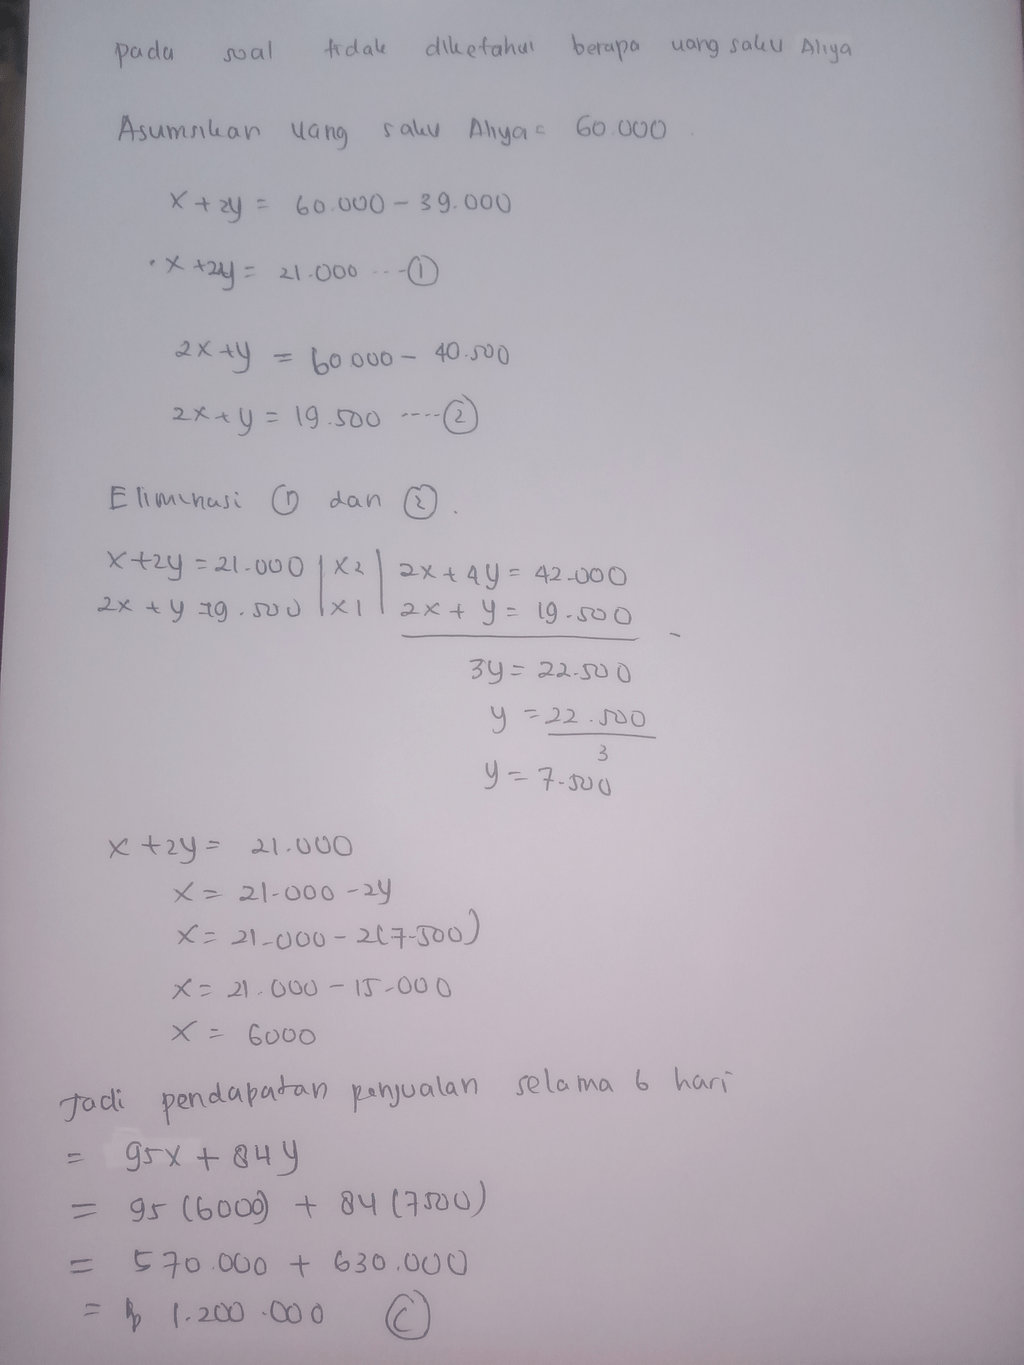 pada soal tidak diketahui berapa uang saku Aliya
Asumsikan uang saku Aliya = 60.000
x + 2y = 60.000 - 39.000
• x + 2y = 21.000 ---- ①
2x + y = 60.000 - 40.500
2x + y = 19.500 ---- ②
Eliminasi ① dan ②.
x + 2y = 21.000 | x2 | 2x + 4y = 42.000
2x + y = 19.500 | x1 | 2x + y = 19.500 -
3y = 22.500
y = 22.500
3
y = 7.500
x + 2y = 21.000
x = 21.000 - 2y
x = 21.000 - 2(7.500)
x = 21.000 - 15.000
x = 6000
Jadi pendapatan penjualan selama 6 hari
= 95x + 84y
= 95 (6000) + 84 (7500)
= 570.000 + 630.000
= Rp 1.200.000 Ⓒ